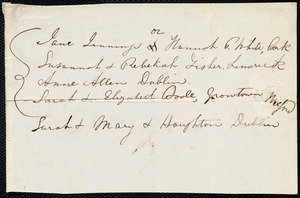 Jane Jennings or & Hannah C. White, Cork
Susannah & Rebekah Fisher, Limerick
Anne Allen Dublin.
Sarah & Elizabeth Poole, Growtown Wexford
Sarah & Mary & Haughton Dublin